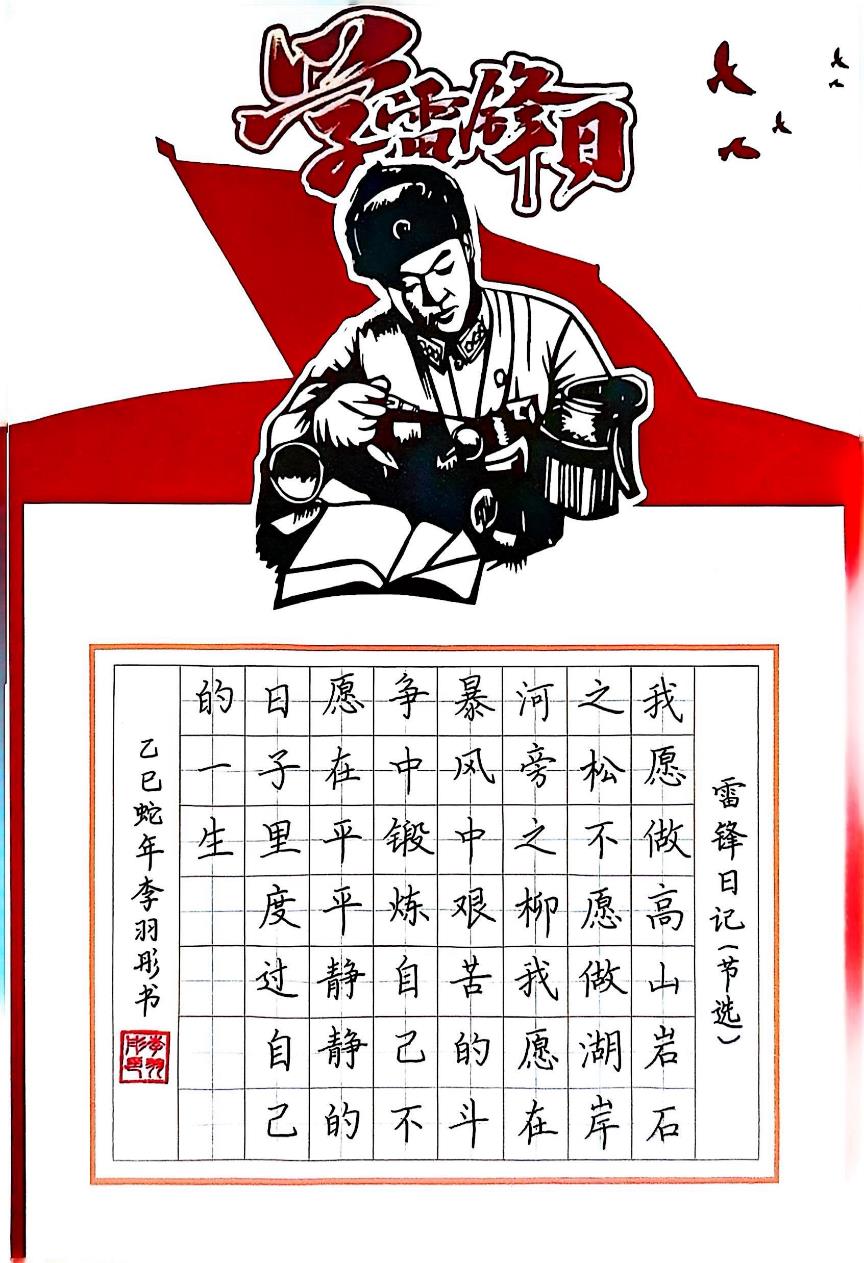 学雷锋日
雷锋日记(节选)
我愿做高山岩石
之松不愿做湖岸
河旁之柳我愿在
暴风中艰苦的斗
争中锻炼自己不
愿在平平静静的
日子里度过自己
的一生
乙巳蛇年李羽彤书